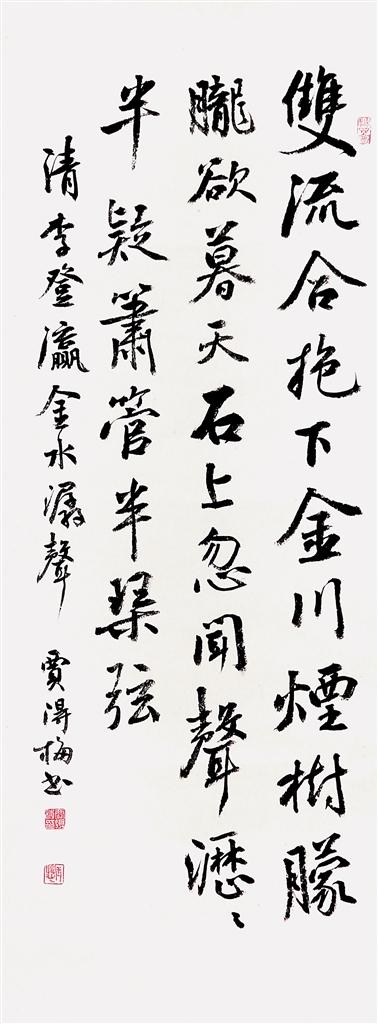 雙流合抱下金川煙樹朦
朧欲暮天石上忽聞聲瀝〻
半疑簫管半琹弦
清李登瀛金水聲 賈得梅书